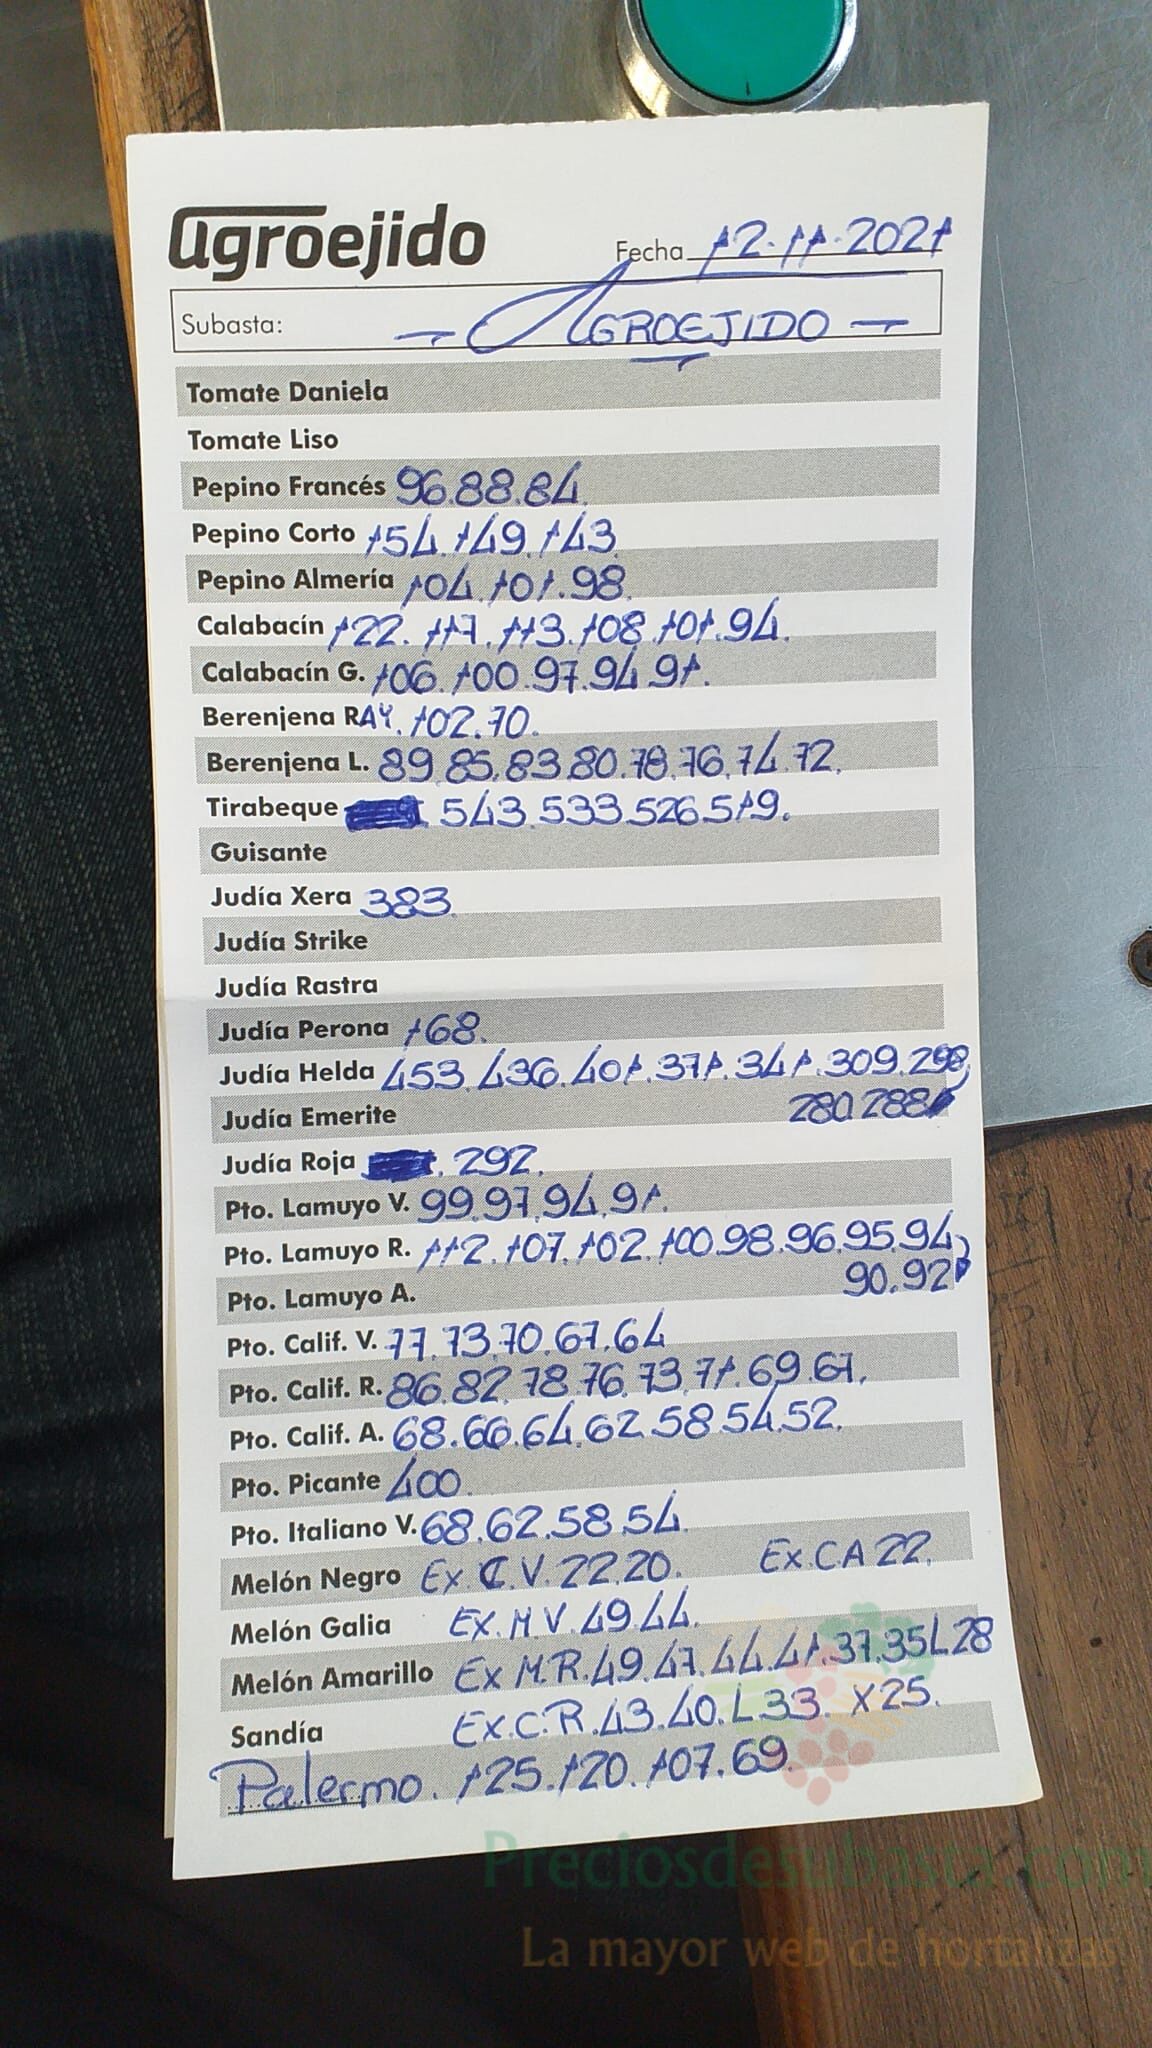 agroejido
Fecha 12-11-2021
Subasta: - AGROEJIDO -
Tomate Daniela
Tomate Liso
Pepino Francés 96.88.84.
Pepino Corto 154.149.143.
Pepino Almería 104.101.98.
Calabacín 122.117.113.108.101.94.
Calabacín G. 106.100.97.94.91.
Berenjena RAY. 102.70.
Berenjena L. 89.85.83.80.78.76.74.72.
Tirabeque 543.533.526.519.
Guisante
Judía Xera 383.
Judía Strike
Judía Rastra
Judía Perona 168.
Judía Helda 453.436.401.371.341.309.298,
Judía Emerite 280.288
Judía Roja . 292.
Pto. Lamuyo V. 99.97.94.91.
Pto. Lamuyo R. 112.107.102.100.98.96.95.94,
Pto. Lamuyo A. 90.92
Pto. Calif. V. 77.73.70.67.64
Pto. Calif. R. 86.82.78.76.73.71.69.67.
Pto. Calif. A. 68.66.64.62.58.54.52.
Pto. Picante 400.
Pto. Italiano V. 68.62.58.54.
Melón Negro Ex.C.V.22.20. Ex.CA 22.
Melón Galia EX.M.V.49.44.
Melón Amarillo Ex M.R.49.47.44.41.37.35L28
Sandía Ex.C.R.43.40.L33. X25.
Palermo. 125.120.107.69.
Preciosdesubasta.com
La mayor web de hortalizas